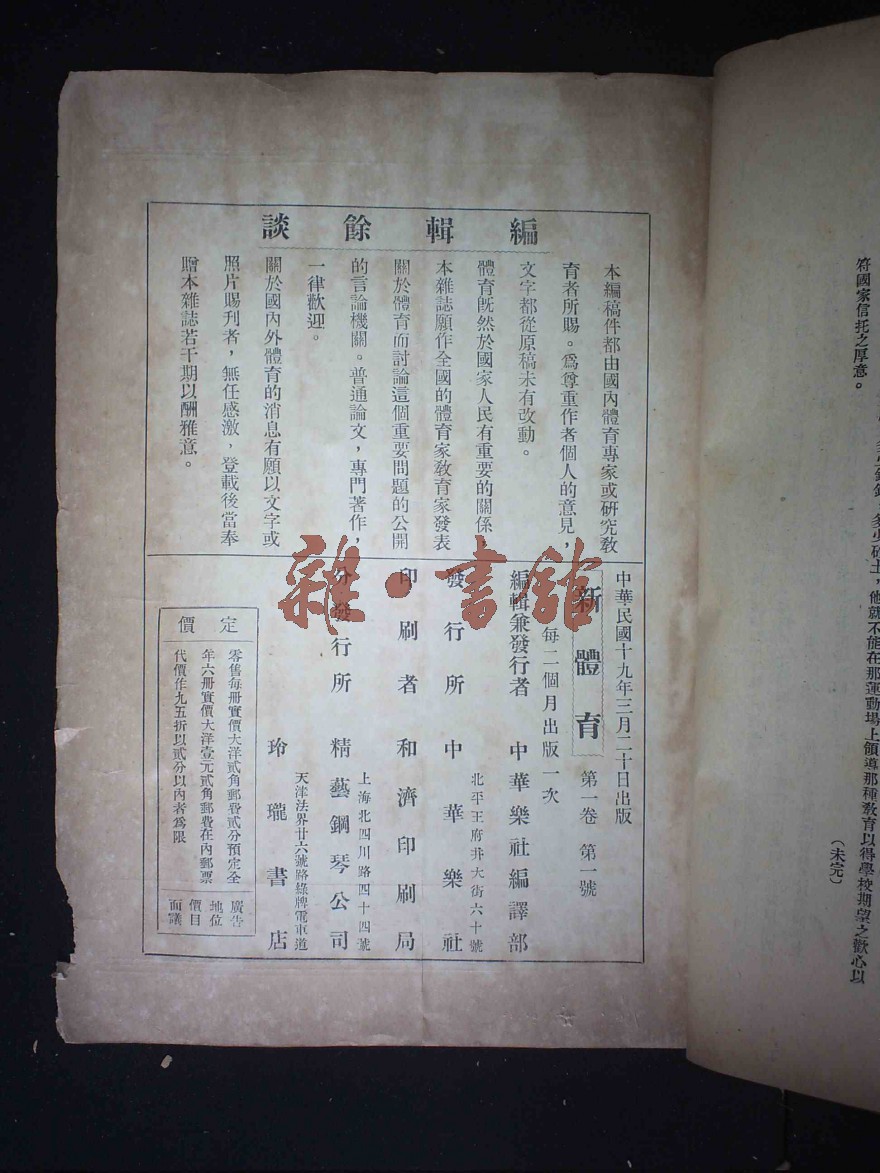 符國家信托之厚意。
他就不能在那運動場上領導那種教育以得學校期望之歡心以
(未完)
編輯餘談
本編稿件都由國內體育專家或研究教
育者所賜。爲尊重作者個人的意見,
文字都從原稿未有改動。
體育既然於國家人民有重要的關係,
本雜誌願作全國的體育家教育家發表
關於體育而討論這個重要問題的公開
的言論機關。普通論文,專門著作,
一律歡迎。
關於國內外體育的消息有願以文字或
照片賜刊者,無任感激,登載後當奉
贈本雜誌若干期以酬雅意。
中華民國十九年三月二十日出版
新體育 第一卷 第一號
每二個月出版一次
編輯兼發行者 中華樂社編譯部
北平王府井大街六十號
發行所 中華樂社
印刷者 和濟印刷局
上海北四川路四十四號
分發行所 精藝鋼琴公司
天津法界廿六號路綠牌電車道
玲瓏書店
定價
零售每冊實價大洋貳角郵費貳分預定全
年六冊實價大洋壹元貳角郵費在內郵票
代價作九五折以貳分以內者爲限
廣告
地位
價目
面議
雜·書館